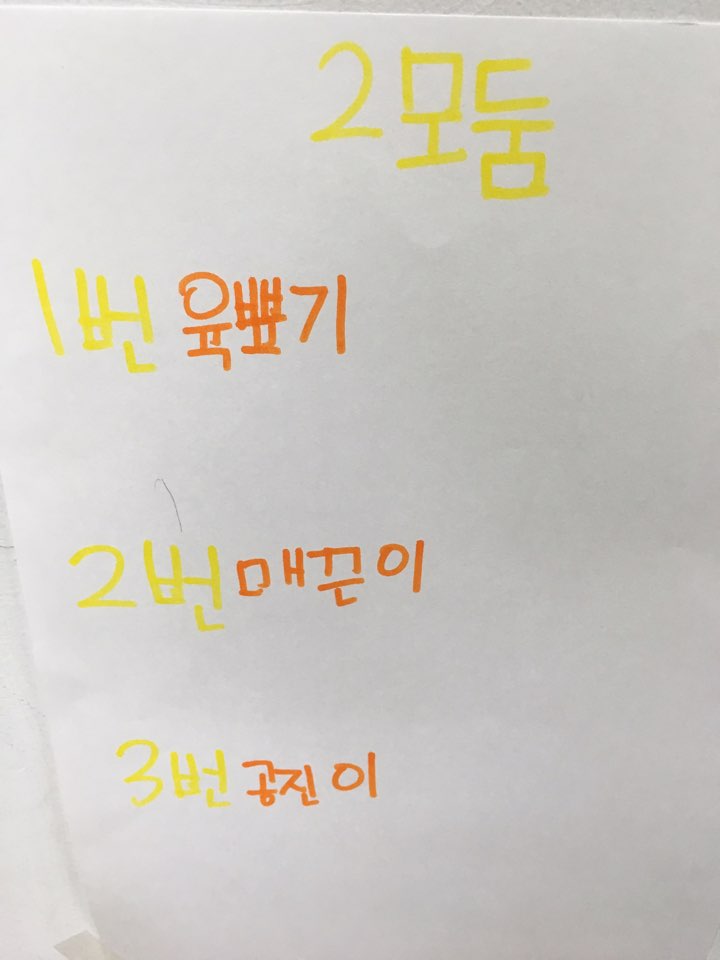 2모둠
1번 육뾰기
2번 매끈이
3번 공진이